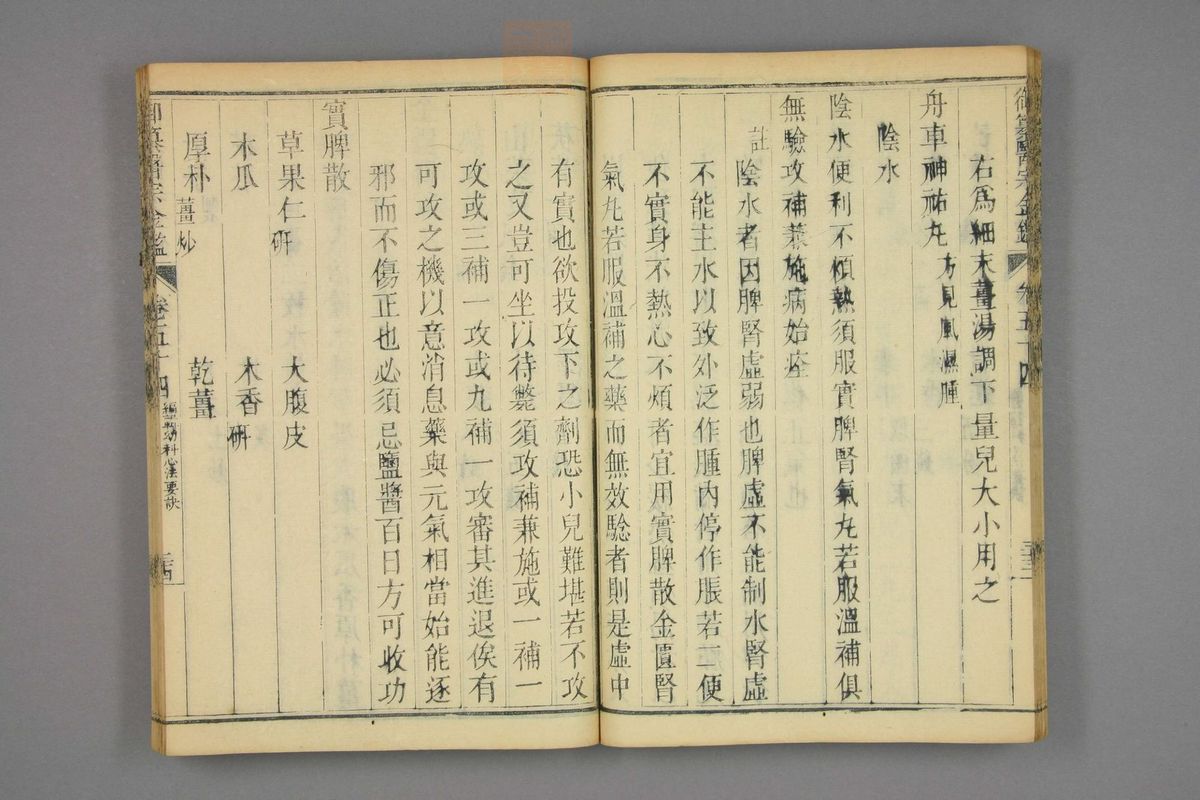 御纂醫宗金鑑 卷五十四
右爲細末薑湯調下量兒大小用之
舟車神祐丸 方見風濕腫
陰水
陰水便利不煩熱須服實脾腎氣丸若服溫補俱
無驗攻補兼施病始痊
註 陰水者因脾腎虛弱也脾虛不能制水腎虛
不能主水以致外泛作腫內停作脹若二便
不實身不熱心不煩者宜用實脾散金匱腎
氣丸若服溫補之藥而無效驗者則是虛中
有實也欲投攻下之劑恐小兒難堪若不攻
之又豈可坐以待斃須攻補兼施或一補一
攻或三補一攻或九補一攻審其進退俟有
可攻之機以意消息藥與元氣相當始能逐
邪而不傷正也必須忌鹽醬百日方可收功
實脾散
草果仁 研 大腹皮
木瓜 木香 研
厚朴 薑炒 乾薑
御纂醫宗金鑑 卷五十四 編輯幼科心法要訣 三十四